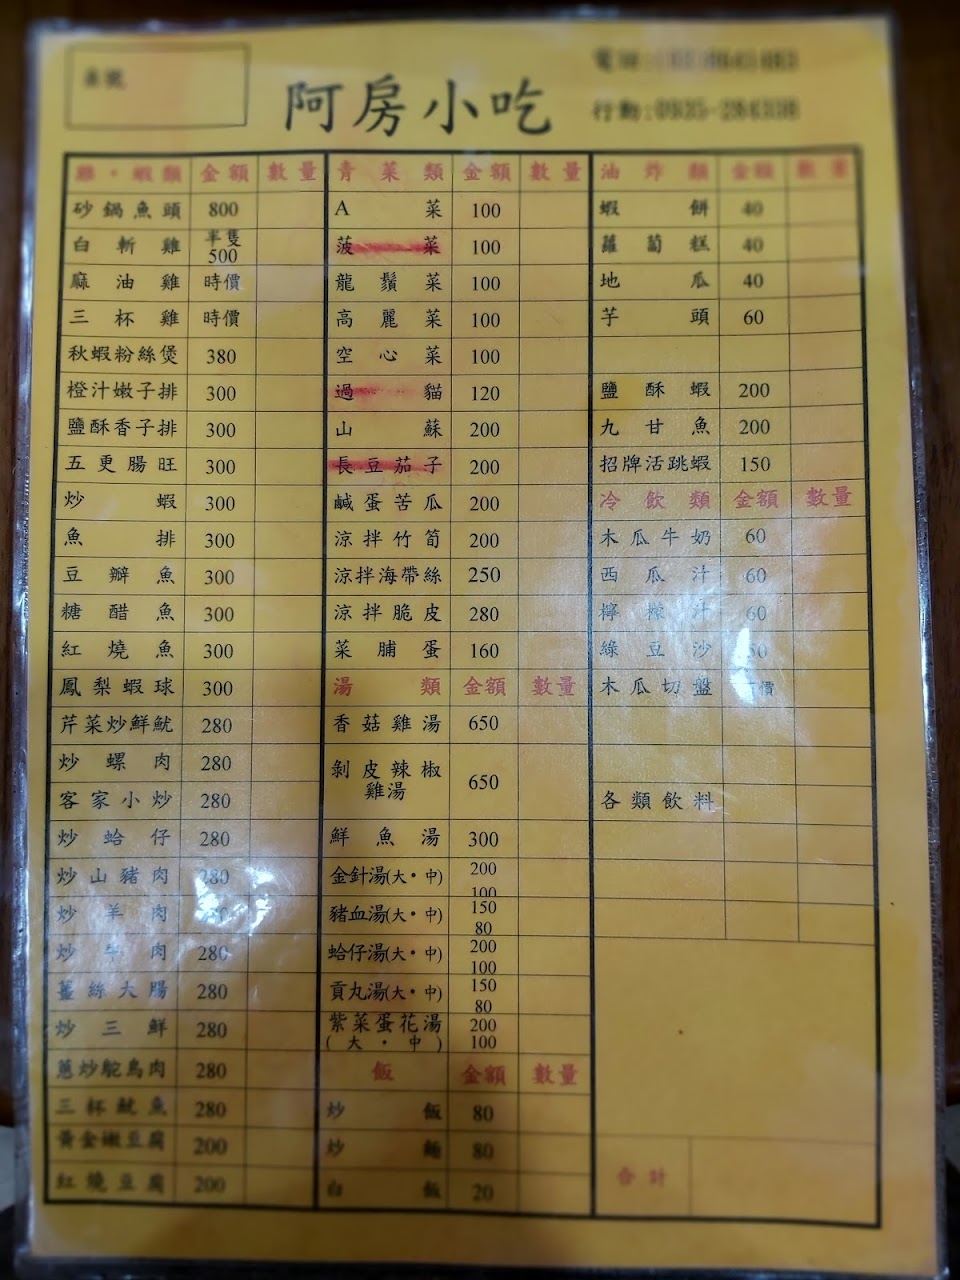 桌號
阿房小吃
行動:0935-284338
雞·蝦類 金額 數量
砂鍋魚頭 800
白斬雞 半隻500
麻油雞 時價
三杯雞 時價
秋蝦粉絲煲 380
橙汁嫩子排 300
鹽酥香子排 300
五更腸旺 300
炒蝦 300
魚排 300
豆瓣魚 300
糖醋魚 300
紅燒魚 300
鳳梨蝦球 300
芹菜炒鮮魷 280
炒螺肉 280
客家小炒 280
炒蛤仔 280
炒山豬肉 280
炒羊肉
炒牛肉 280
薑絲大腸 280
炒三鮮 280
蔥炒鴕鳥肉 280
三杯魷魚 280
黃金嫩豆腐 200
紅燒豆腐 200
青菜類 金額 數量
A菜 100
菠菜 100
龍鬚菜 100
高麗菜 100
空心菜 100
過貓 120
山蘇 200
長豆茄子 200
鹹蛋苦瓜 200
涼拌竹筍 200
涼拌海帶絲 250
涼拌脆皮 280
菜脯蛋 160
湯類 金額 數量
香菇雞湯 650
剝皮辣椒雞湯 650
鮮魚湯 300
金針湯(大·中) 200 100
豬血湯(大·中) 150 80
蛤仔湯(大·中) 200 100
貢丸湯(大·中) 150 80
紫菜蛋花湯(大·中) 200 100
飯 金額 數量
炒飯 80
炒麵 80
白飯 20
油炸類 金額 數量
蝦餅 40
蘿蔔糕 40
地瓜 40
芋頭 60
鹽酥蝦 200
九甘魚 200
招牌活跳蝦 150
冷飲類 金額 數量
木瓜牛奶 60
西瓜汁 60
檸檬汁 60
綠豆沙
木瓜切盤 時價
各類飲料
合計